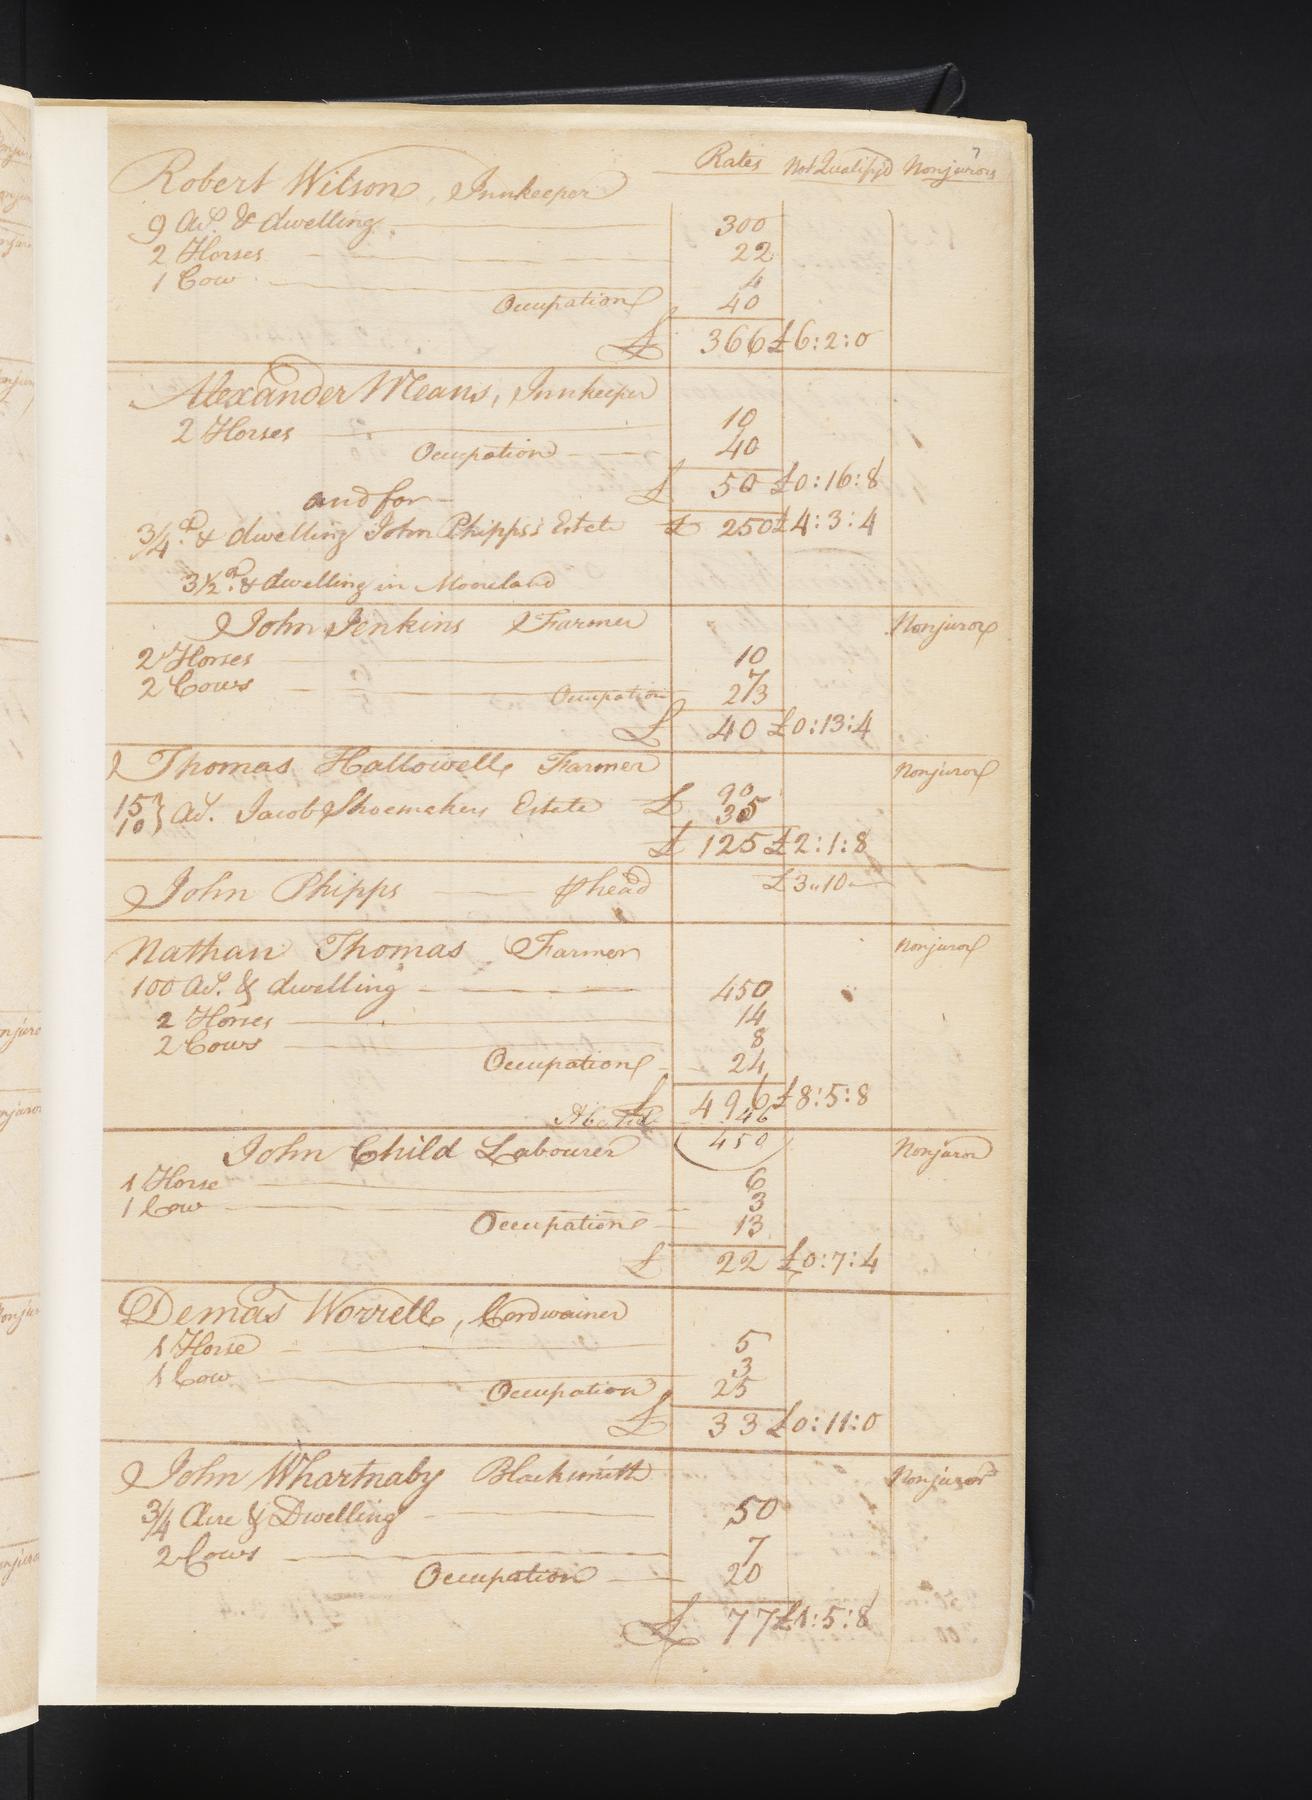 7
Rates Not Qualifyd Nonjurors
Robert Wilson, Innkeeper
9 As. & dwelling 300
2 Horses 22
1 Cow 4
Occupation 40
£ 366 £6:2:0
Alexander Means, Innkeeper
2 Horses 10
Occupation 40
£ 50 £0:16:8
and for
3/4 a. & dwelling John Phipps's Estate £ 250 £4:3:4
3 1/2 a. & dwelling in Mooreland
John Jenkins Farmer Nonjuror
2 Horses 10
2 Cows 7
Occupation 23
£ 40 £0:13:4
Thomas Hallowell Farmer Nonjuror
15 } As. Jacob Shoemakers Estate £ 90
10 } 35
£ 125 £2:1:8
John Phipps ⅌ head £3"10
Nathan Thomas Farmer Nonjuror
100 As. & dwelling 450
2 Horses 14
2 Cows 8
Occupation 24
£ 496 £8:5:8
Abated 46
450
John Child Labourer Nonjuror
1 Horse 6
1 Cow 3
Occupation 13
£ 22 £0:7:4
Demas Worrell, Cordwainer
1 Horse 5
1 Cow 3
Occupation 25
£ 33 £0:11:0
John Whartnaby Blacksmith Nonjuror
3/4 Acre & Dwelling 50
2 Cows 7
Occupation 20
£ 77 £1:5:8